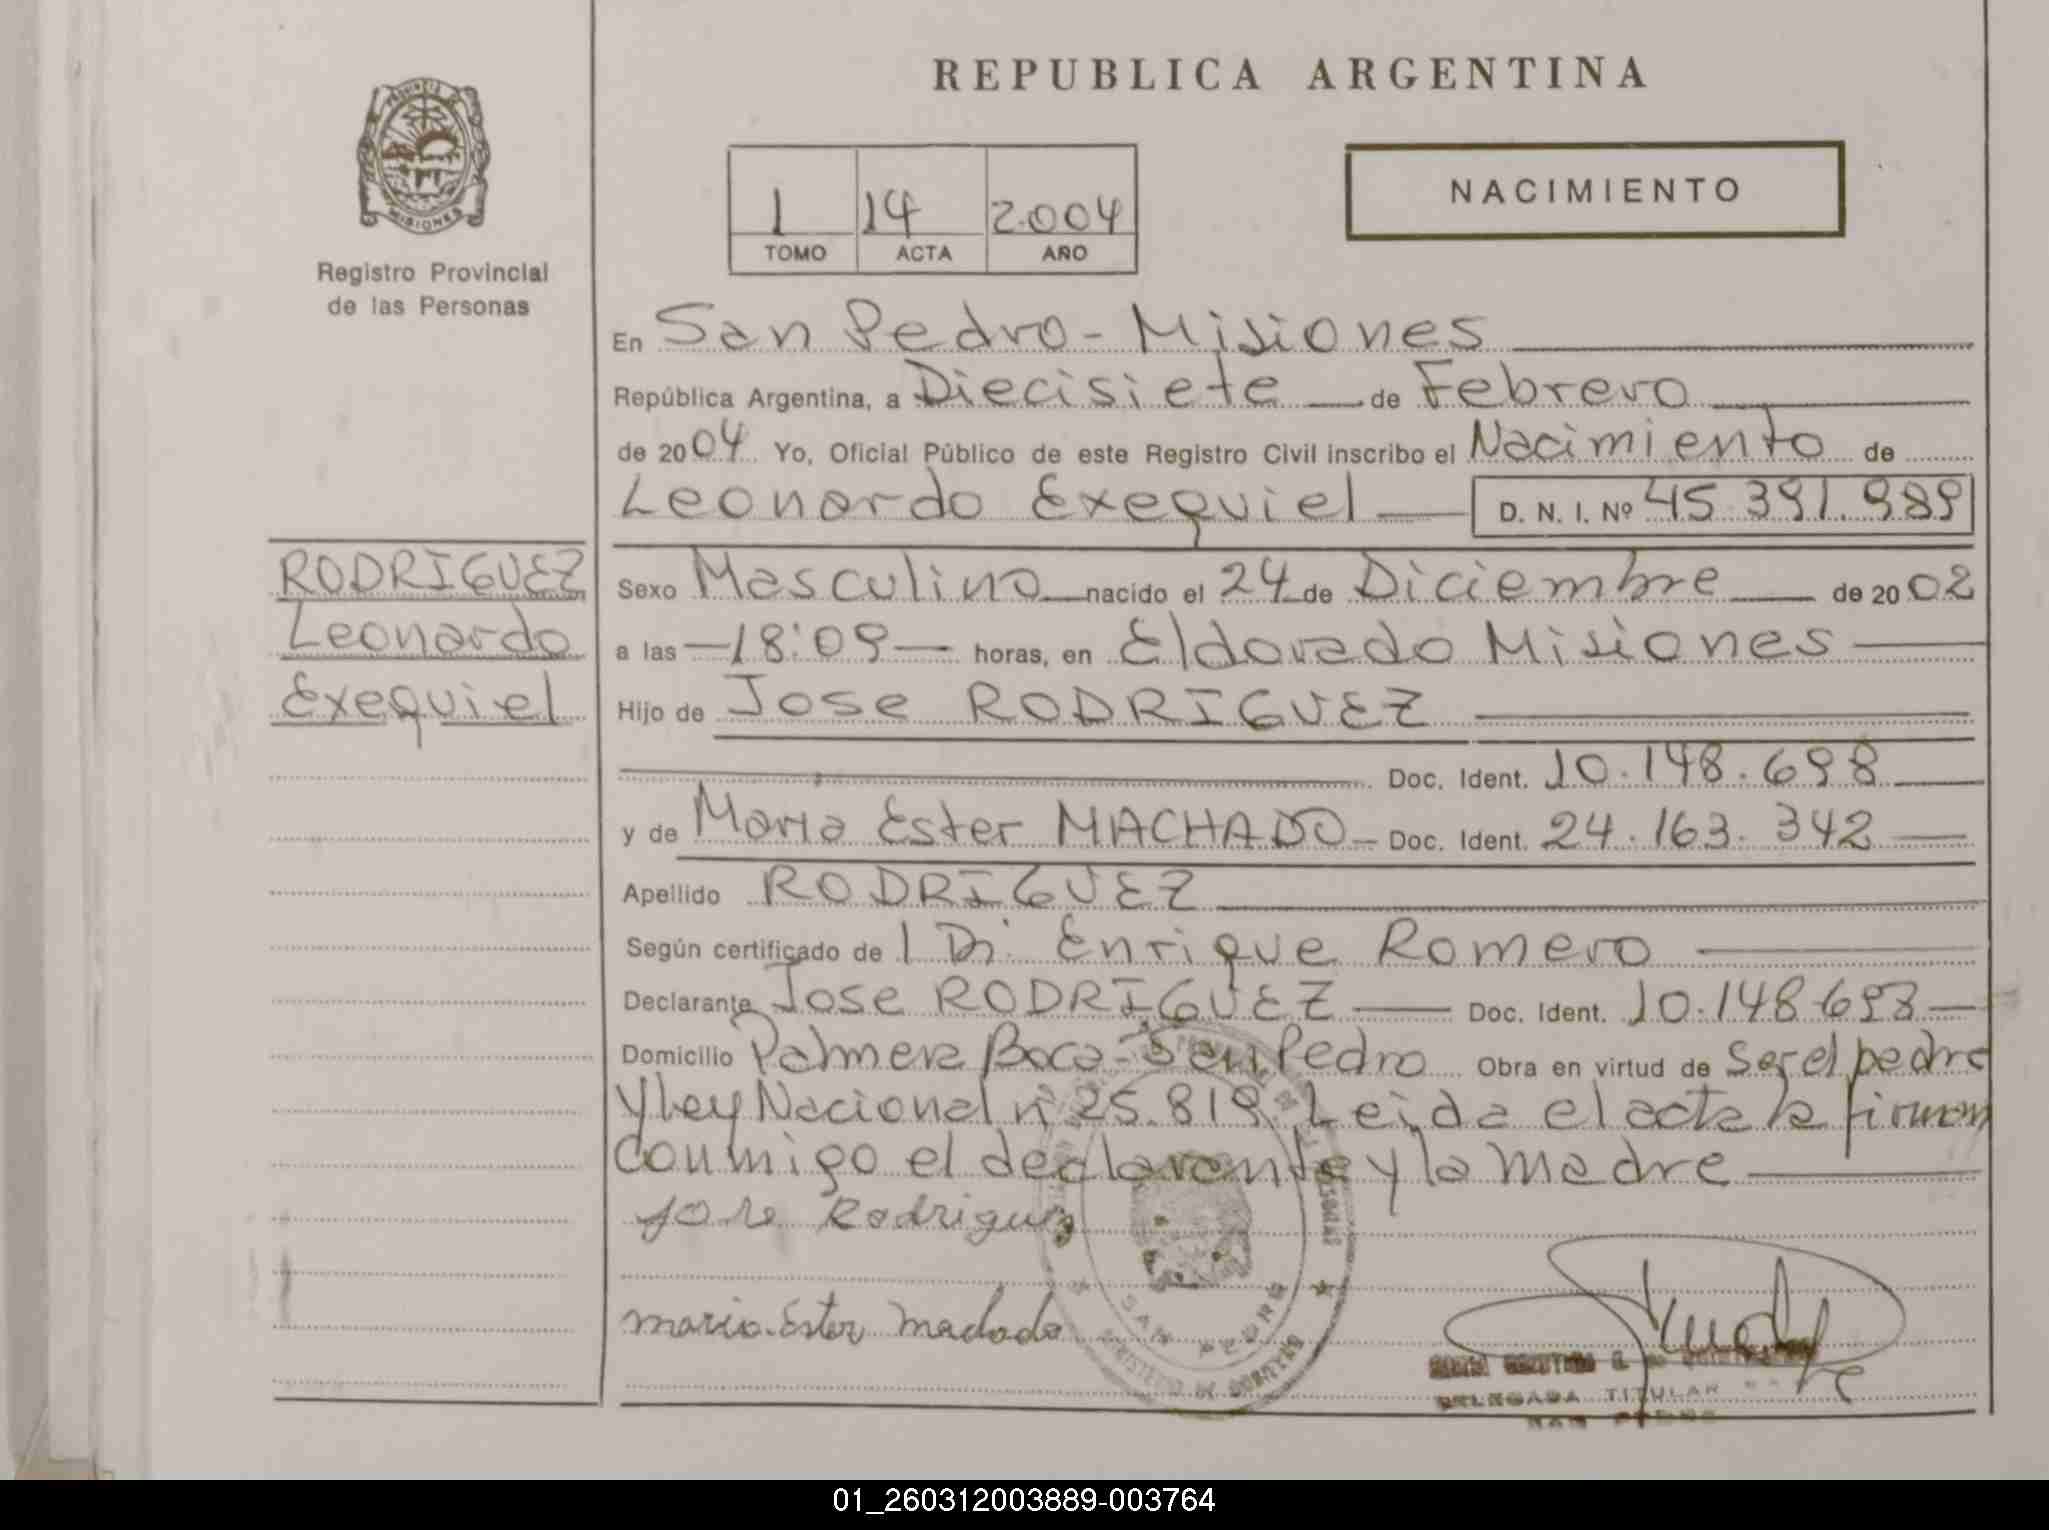 REPUBLICA ARGENTINA
PROVINCIA DE
MISIONES
Registro Provincial
de las Personas
1 14 2.004
TOMO ACTA AÑO
NACIMIENTO
En San Pedro - Misiones
República Argentina, a Diecisiete de Febrero
de 2004 Yo, Oficial Público de este Registro Civil inscribo el Nacimiento de
Leonardo Exequiel D. N. I. Nº 45.391.989
RODRIGUEZ
Leonardo
Exequiel
Sexo Masculino nacido el 24 de Diciembre de 2002
a las -18:09- horas, en Eldorado Misiones
Hijo de Jose RODRIGUEZ
Doc. Ident. 10.148.698
y de Maria Ester MACHADO - Doc. Ident. 24.163.342
Apellido RODRIGUEZ
Según certificado de l Dr. Enrique Romero
Declarante Jose RODRIGUEZ Doc. Ident. 10.148.698
Domicilio Palmera Boca - San Pedro Obra en virtud de ser el padre
y Ley Nacional nº 25.819 Leida el acta la firman
conmigo el declarante y la madre
Jose Rodriguez
maria Ester Machado
SAN PEDRO
DELEGADA TITULAR
SAN PEDRO
01_260312003889-003764